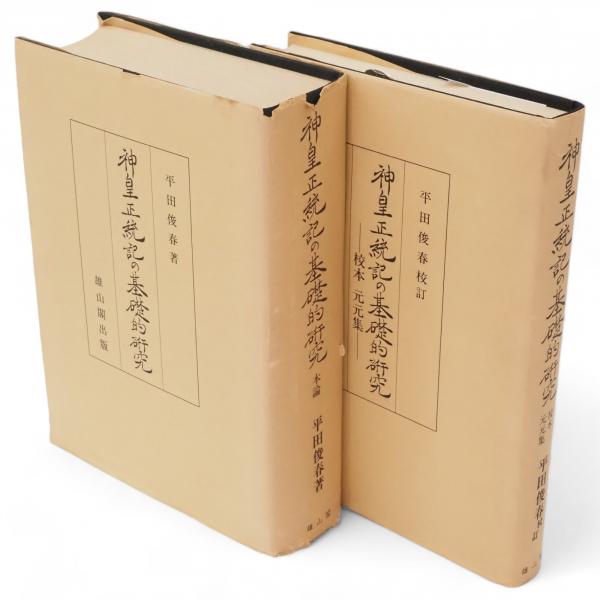 平田俊春著
神皇正統記の基礎的研究
雄山閣出版
神皇正統記の基礎的研究
本論
平田俊春著
雄山閣
平田俊春校訂
神皇正統記の基礎的研究
校本 元元集
神皇正統記の基礎的研究
校本
元元集
平田俊春校訂
雄山